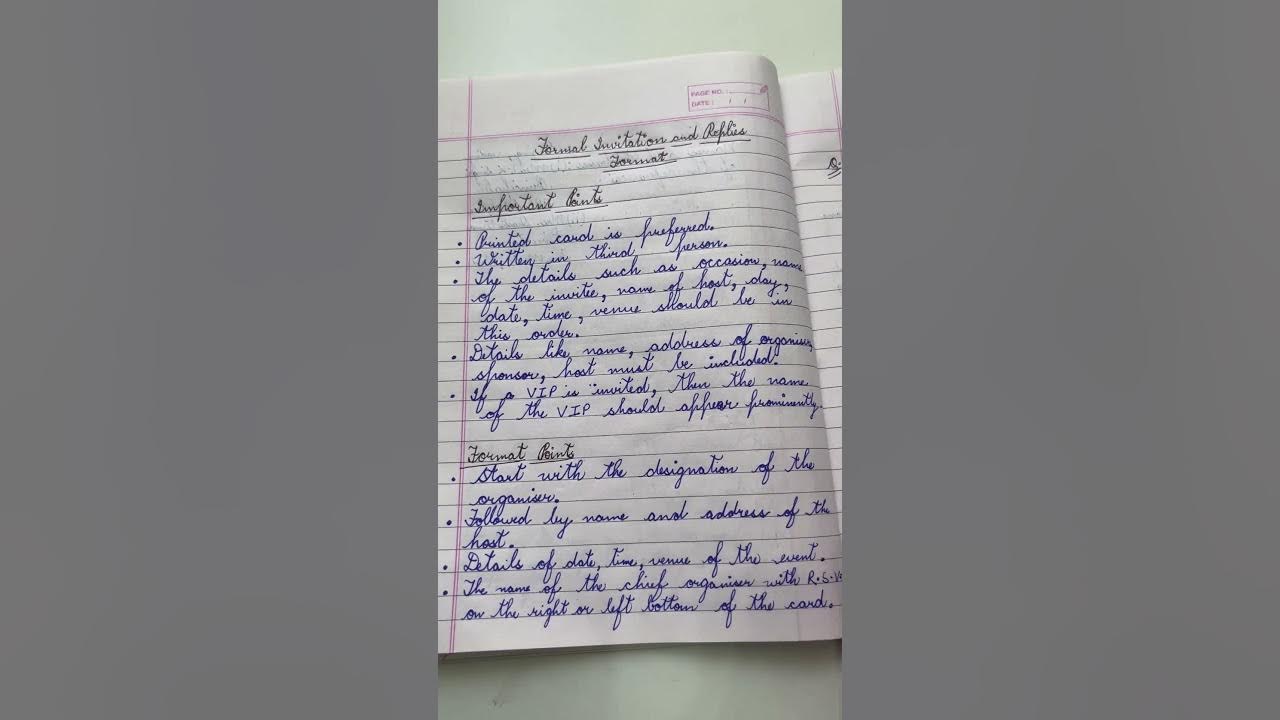 PAGE NO. :
DATE : / /
Formal Invitation and Replies
Format
Important Points
• Printed card is preferred.
• Written in third person.
• The details such as occasion, name
of the invitee, name of host, day,
date, time, venue should be in
this order.
• Details like name, address of organiser,
sponsor, host must be included.
• If a VIP is invited, then the name
of the VIP should appear prominently.
Format Points
• Start with the designation of the
organiser.
• Followed by name and address of the
host.
• Details of date, time, venue of the event.
• The name of the chief organiser with R.S.V
on the right or left bottom of the card.
Q.